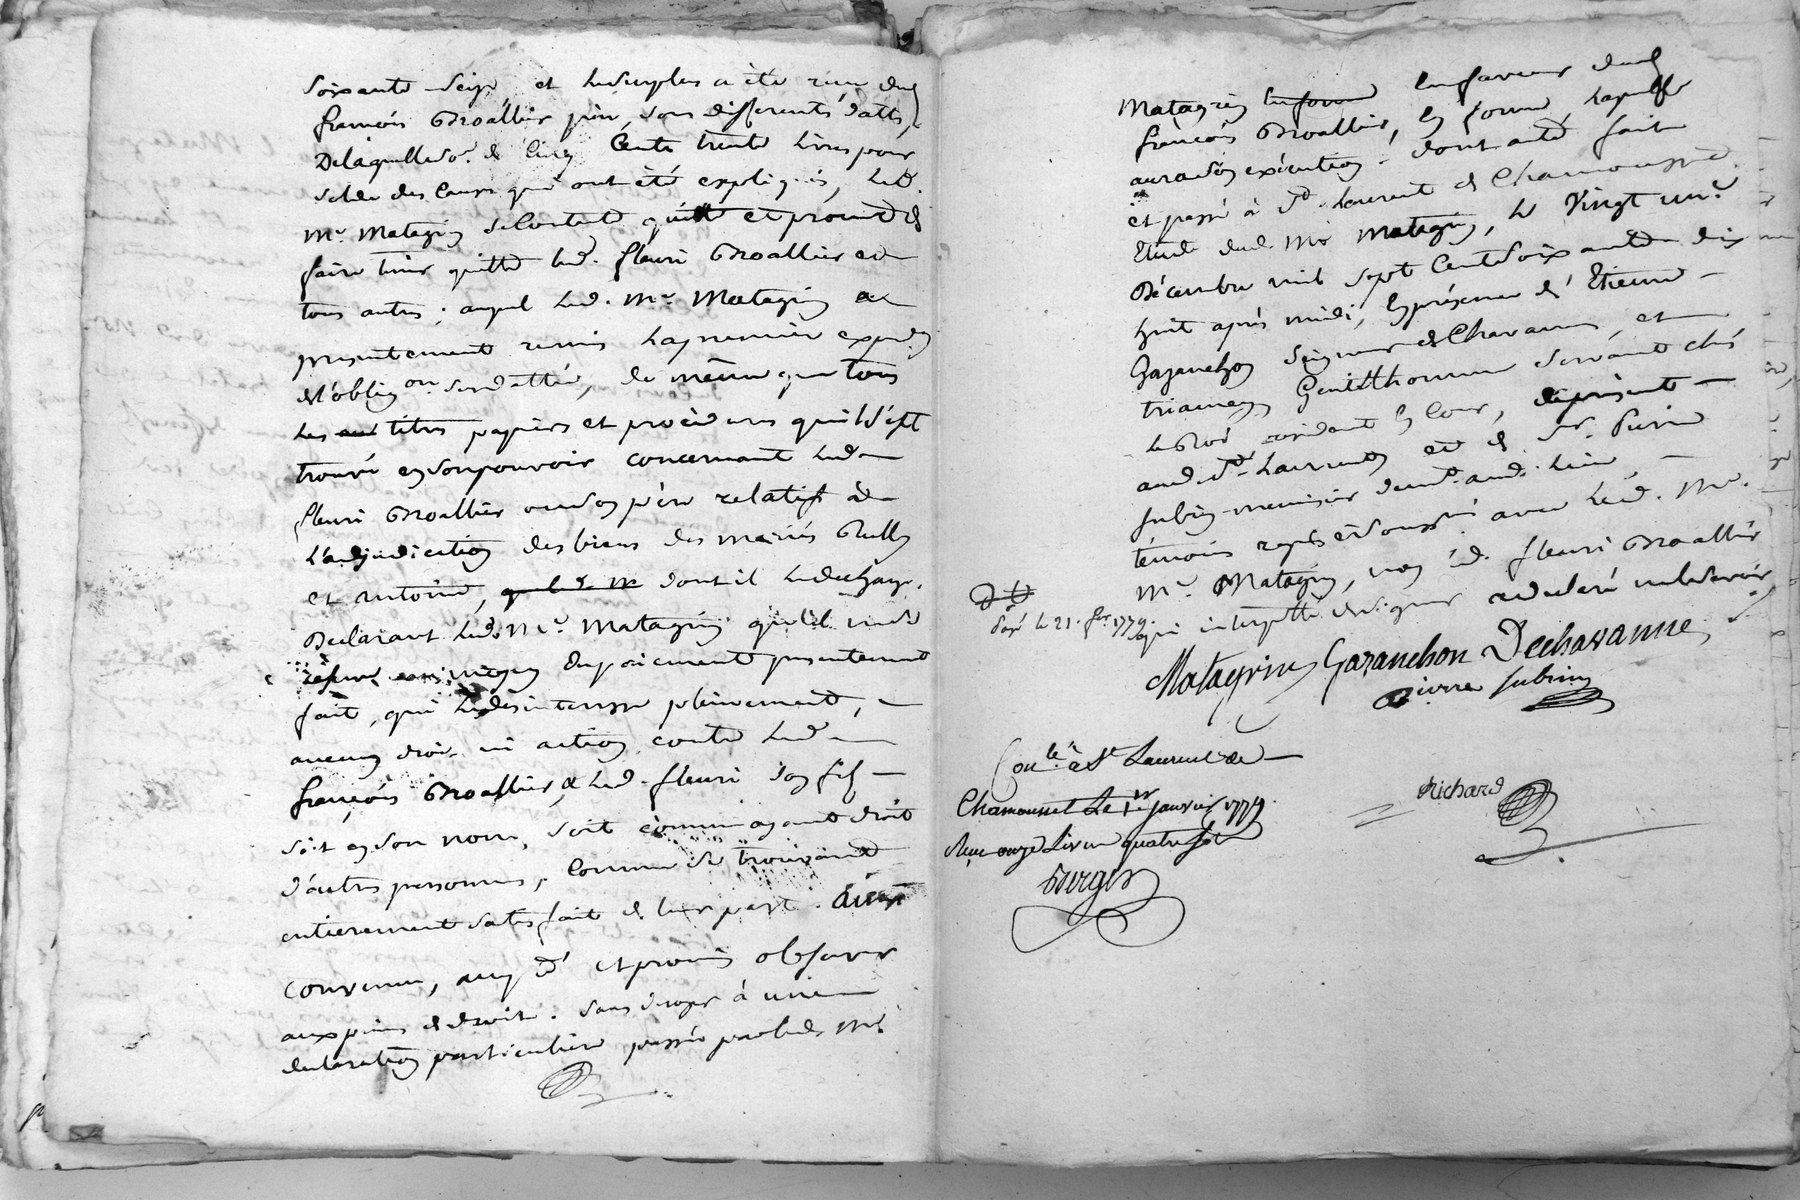 soixante seize et le surplus a été reçu dud
françois Broallier père, sous differents datts,
De laquelle so.e de Cinq Cents trente livres pour
solde des causes qui ont été expliqués, led.
Mr. Matagrin se Contente quitte et promet de
faire tenir quitte led. fleuri Broallier et
tous autres; auquel led. Mr. Matagrin a
presentement remis la premiere expedon
de l'obligon susdattée, de même que tous
les aut titres papiers et procedures qu'il s'est
trouvé en son pouvoir concernant led
fleuri Broallier ou son père relatifs à
L'adjudication des biens des mariés Rully
et antoine, dont il le decharge.
Declarant led. Mr. Matagrin qu'il n'a
reserve au moyen du paiement presentement
fait, qui le desinteresse pleinement,
aucun droit ni action contre led
françois Broallier, & led. fleuri son fils
soit en son nom, soit comme ayant droit
d'autres personnes, Comme se trouvant
entierement satisfait de leur part. Ainsi
convenu, accepté et promis observer
aux peines de droit. sans deroger à une
declaration particuliere passée par led. Mr.
Matagrin en forme en faveur dud
françois Broallier, en forme, laquelle
aura son exécution. dont acte fait
et passé à St. Laurent de Chamousset
Etude dud. Mr Matagrin, le Vingt un
Décembre mil sept Cent soixante dix
huit après midi, en présence d'Etienne
Gazanchon Seigneur de Chavanne, et
Gentilhomme servant chés
le Roi residant en Cour, de présent
aud. St. Laurent et de sr. Pierre
subrin menuisier demt. aud. lieu,
témoins requis et soussignés avec led. Mr.
Mr. Matagrin, non led. fleuri Broallier
qui interpellé de signer a declaré ne le savoir
payé le 21. fer. 1779.
Matagrin Gazanchon Dechavanne
Pierre subrin
Conlé à St Laurent de
Chamousset Le 1er janvier 1779
Reçu onze Livres quatre sols
Berger
Richard